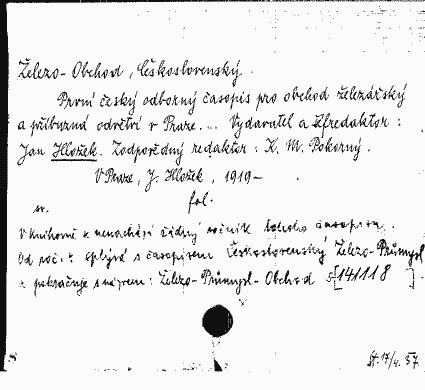 Železo-Obchod, Československý.
První český odborný časopis pro obchod železářský
a příbuzná odvětví v Praze. .. Vydavatel a šéfredaktor :
Jan Hložek. Zodpovědný redaktor : K. M. Pokorný.
V Praze, J. Hložek, 1919-
fol.
V knihovně se nenachází žádný ročník tohoto časopisu.
Od roč. splývá s časopisem Československý Železo-Průmysl
a pokračuje s názvem : Železo-Průmysl-Obchod [141118]
17/4. 57